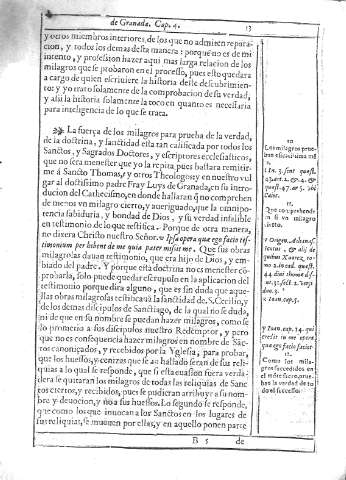 de Granada. Cap. 4.
13
y otros miembros interiores, de los que no admiten repara-
cion, y todos los demas desta manera: porque no es de mi
intento, y profession hazer aqui mas larga relacion de los
milagros que se probaron en el processo, pues esto quedara
a cargo de quien escriuiere la historia deste descubrimien-
to: y yo trato solamente de la comprobacion de su verdad,
y assi la historia solamente la toco en quanto es necessaria
para inteligencia de lo que se traca.
La fuerça de los milagros para prueua de la verdad,
de la doctrina, y sanctidad esta tan calificada por todos los
Sanctos, y Sagrados Doctores, y escriptores ecclesiasticos,
que no sera menester que yo la repita pues bastara remitir-
me á Sancto Thomas, y otros Theologos y en nuestro vul
gar al doctissimo padre Fray Luys de Granada, en su intro-
duction del Cathecismo, en donde hallaran que comprehen
de menos vn milagro cierto, y aueriguado, que la omnipo-
tencia sabiduria, y bondad de Dios, y su verdad infalible
en testimonio de lo que testifica. Porque de otra manera,
no dixera Christo nuestro Señor. Ipsa opera quæ ego facio tes-
timonium perhibent de me quia pater misit me. Que sus obras
milagrosas dauan testimonio, que era hijo de Dios, y em-
biado del padre. Y porque esta doctrina no es menester có-
probarla, solo puede quedar escrupulo en la aplicacion del
testimonio porque dira alguno, que es sin duda que aque-
llas obras milagrosas testificauã la sanctidad de S. Cecilio, y
de los demas discipulos de Sanctiago, de la qual no se duda,
ni de que en su nombre se puedan hazer milagros, como se
lo prometio a sus discipulos nuestro Redemptor, y pero
que no es consequencia hazer milagros en nombre de Sác-
tos canonizados, y recibidos por la Yglesia, para probar,
que los huessos, y cenizas que se an hallado seran de sus reli-
quias a lo qual se responde, que si esta euasion fuera verda-
dera se quitaran los milagros de todas las reliquias de Sanc
tos ciertos, y recibidos, pues se pudieran atribuyr a su nom-
bre y deuocion, y no a sus huessos. Lo segundo se responde,
que como los que inuocan a los Sanctos en los lugares de
sus reliquias, se mueuen por ellas, y en aquello ponen parte
B 5
de
Los milagros prue-
Que comprehende
en si vn milagro
cierto.
2 Ioan. cap. 5.
y Ioan. cap. 14. qui
credit in me opera
quæ ego facio faciet
12.
Como los mila-
gros succedidos en